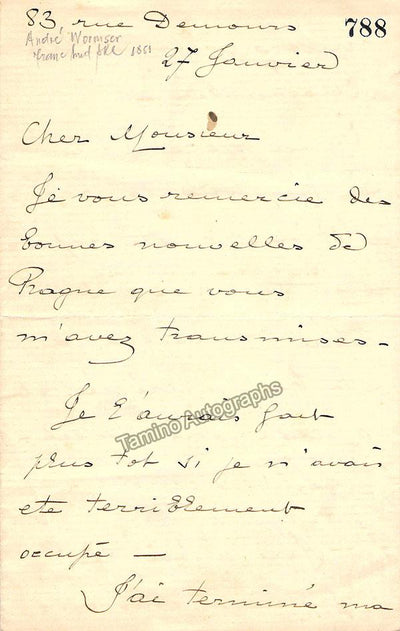 83, rue Demours
788
André Wormser
1851
27 Janvier
Cher Monsieur
Je vous remercie des
bonnes nouvelles de
Prague que vous
m'avez transmises -
Je l'aurais fait
Tamino Autographs
plus tot si je n'avais
ete terriblement
occupé —
J'ai terminé ma